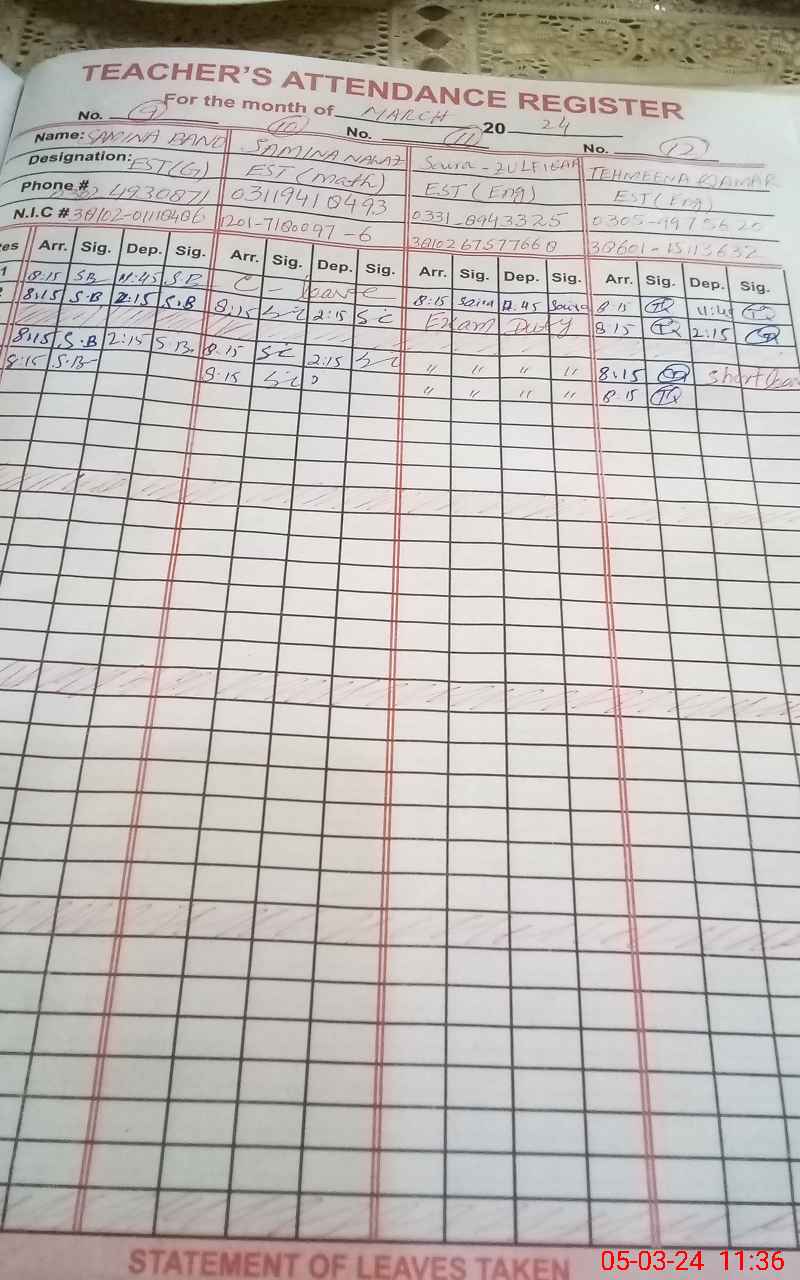 TEACHER'S ATTENDANCE REGISTER
For the month of MARCH 20 24
No. 9 10 No. 11 No. 12
Name: SAMINA BANO SAMINA NAWAZ Saira - ZULFIQAR TEHMEENA QAMAR
Designation: EST(G) EST (Math) EST (Eng) EST (Eng)
Phone # 4930871 03119410493 0331-0943325 0305-9975620
N.I.C # 38102-01110406 1201-7180097-6 3810267577660 38601-15113632
tes Arr. Sig. Dep. Sig. Arr. Sig. Dep. Sig. Arr. Sig. Dep. Sig. Arr. Sig. Dep. Sig.
1 8:15 SB 11:45 S.B C - leave 8:15 Saira 11.45 Saira 8:15 TQ 11:45 TQ
2 8:15 S.B 2:15 S.B 8:15 2:15 Exam Duty 8:15 TQ 2:15 TQ
8:15 S.B 2:15 S.B. 8:15 2:15 " " " " 8:15 TQ short leave
8:15 S.B 8:15 " " " " 8:15 TQ
STATEMENT OF LEAVES TAKEN
05-03-24 11:36